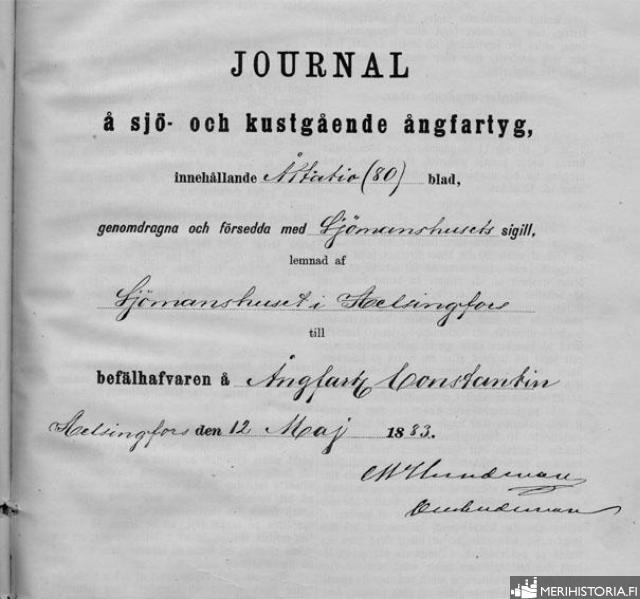 JOURNAL
å sjö- och kustgående ångfartyg,
innehållande Åttatio (80) blad,
genomdragna och försedda med Sjömanshusets sigill,
lemnad af
Sjömanshuset i Helsingfors
till
befälhafvaren å Ångfart Constantin
Helsingfors den 12 Maj 1883.
Ombudsman
MERIHISTORIA.FI